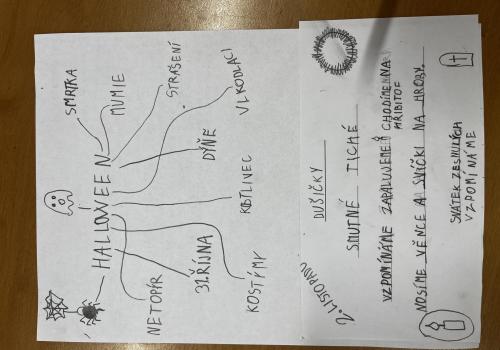 HALLOWEEN
SMRTKA
MUMIE
STRAŠENÍ
VLKODLACI
DÝŇE
KOSTÝMY
31. ŘÍJNA
NETOPÝR
2. LISTOPADU
DUŠIČKY
SMUTNÉ TICHÉ
VZPOMÍNÁME ZAPALUJEME CHODÍME NA
HŘBITOF
NOSÍME VĚNCE A SVÍČKI NA HROBY.
SVÁTEK ZESNULÝCH
VZPOMÍNÁME